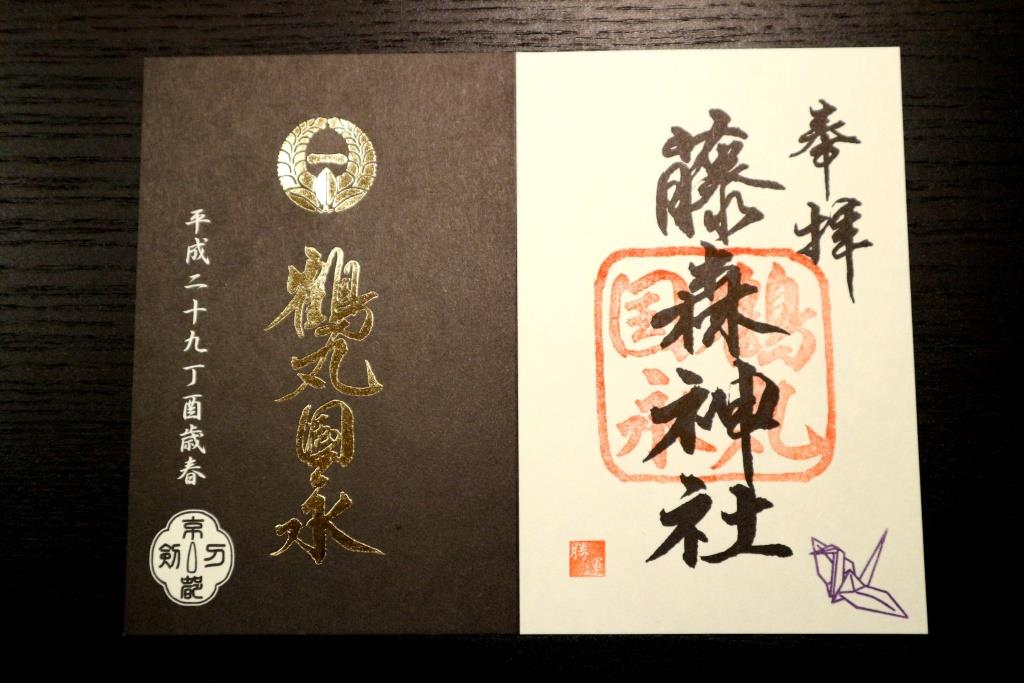 奉拝
藤森神社
鶴丸
国永
勝運
鶴丸國永
平成二十九丁酉歳春
京都
刀剣